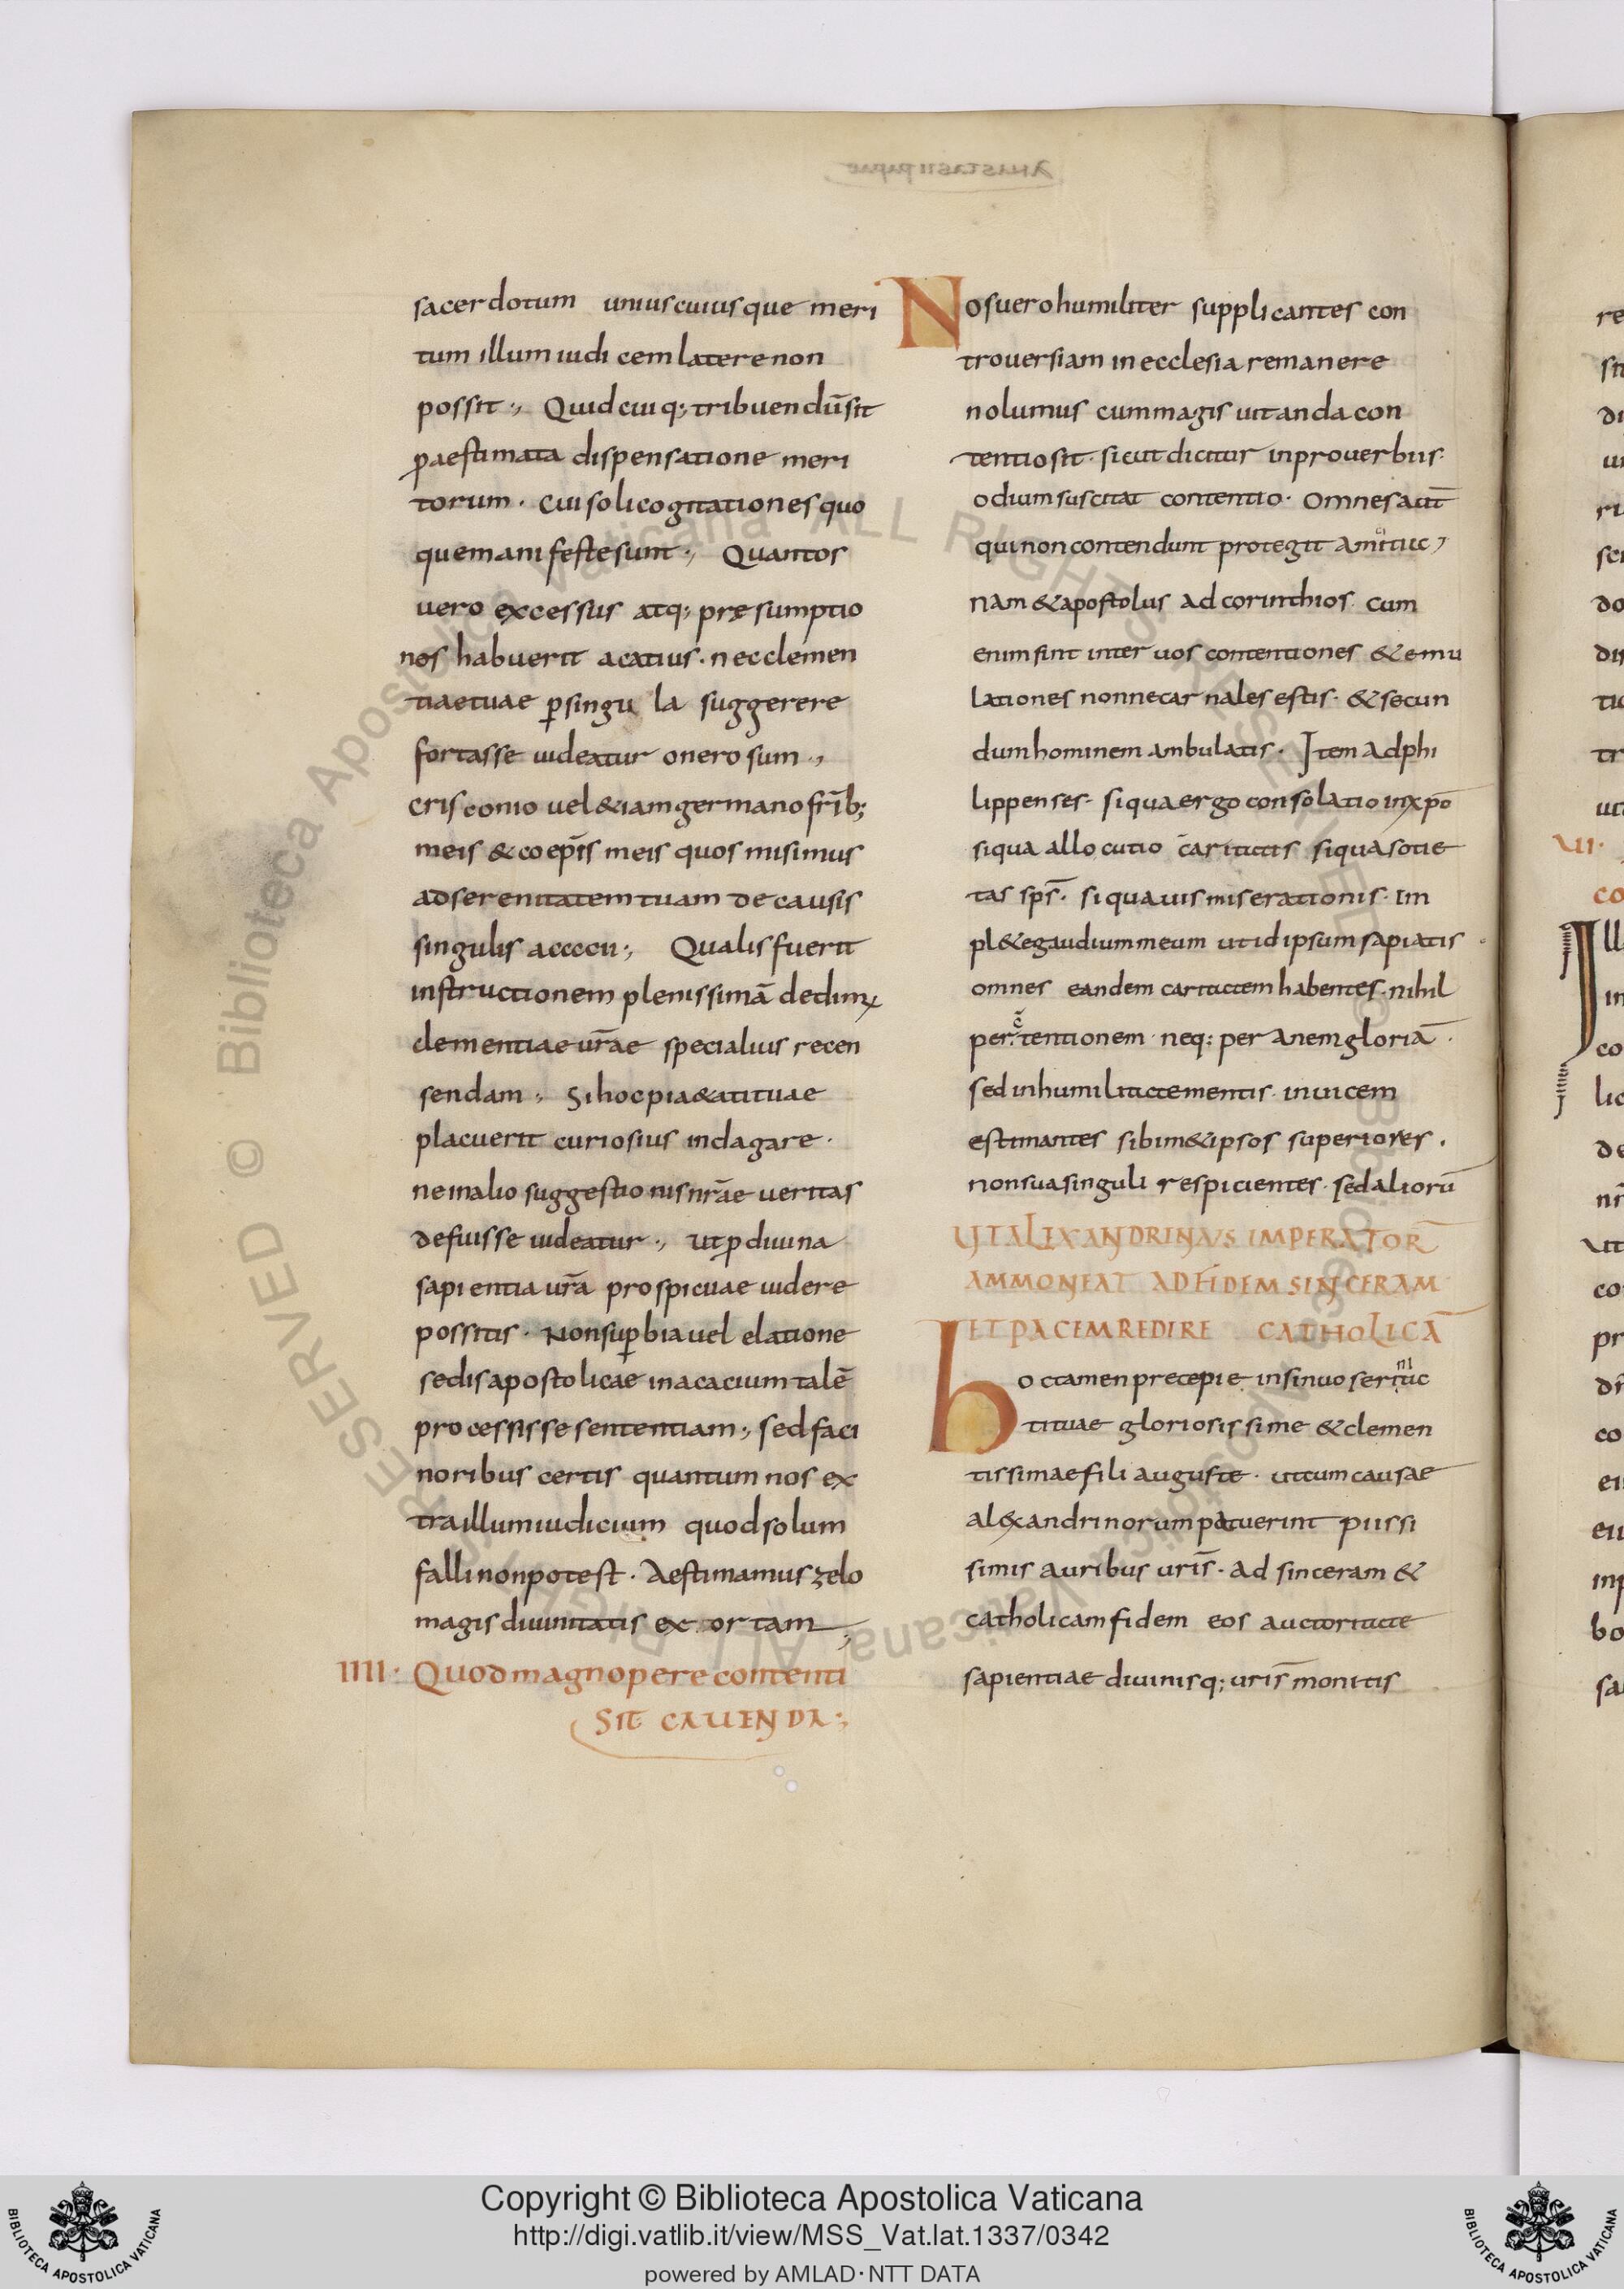 sacerdotum uniuscuiusque meri
tum illum iudicem latere non
possit ·, Quid cuiq; tribuendū sit
p̱aestimata dispensatione meri
torum · cui soli cogitationes quo
que manifeste sunt ·, Quantos
uero excessus atq; pręsumptio
nes habuerit acatius · nec clemen
tiae tuae ꝑ singula suggerere
fortasse uideatur onerosum ·,
crisconio uel &iam germano fr̄ib;
meis & coep̄is meis quos misimus
ad serenitatem tuam de causis
singulis acacii ·, Qualis fuerit
instructionem plenissimā dedimꝰ
clementiae ur̄ae specialius recen
sendam ·, Si hoc pi&ati tuae
placuerit curiosius indagare ·
ne in alio suggestionis nr̄ae ueritas
defuisse uideatur ·, ut ꝑ diuina
sapientia ur̄a prospicuae uidere
possitis · Non suꝑbia uel elatione
sedis apostolicae in acacium talē
processisse sententiam ·, sed faci
noribus certis quantum nos ex
tra illum iudicium quod solum
falli non potest · Aestimamus zelo
magis diuinitatis extortam ·,
IIII · Quod magnopere contenti
SIT CAUENDA ·,
Nos uero humiliter supplicantes con
trouersiam in ecclesia remanere
nolumus cum magis uitanda con
tentio sit · sicut dicitur in prouerbiis ·
odium suscitat contentio · Omnes aut̄
qui non contendunt protegit amicitia
Nam & apostolus ad corinthios · cum
enim sint inter uos contentiones & emu
lationes nonne carnales estis · & secun
dum hominem ambulatis · Item ad phi
lippenses · si qua ergo consolatio in xp̄o
si qua allocutio caritatis si qua socie
tas sp̄s · si qua uis miserationis · Im
pl&e gaudium meum ut id ipsum sapiatis
omnes eandem caritatem habentes · nihil
per c̄tentionem · neq: per anem gloriā ·
sed in humilitate mentis · inuicem
estimantes sibim&ipsos superiores ·
non sua singuli respicientes · sed alioru̅
UT ALIXANDRINUS IMPERATOR
AMMONEAT AD FIDEM SINCERAM
ET PACEM REDIRE CATHOLICĀ
hoc tamen precepie insinuo serenita
ti tuae gloriosissime & clemen
tissimae fili auguste · ut cum causae
alexandrinorum patuerint piissi
simis auribus uris̄ · ad sinceram &
catholicam fidem eos auctoritate
sapientiae diuinisq; uris̄ monitis
Copyright © Biblioteca Apostolica Vaticana
http://digi.vatlib.it/view/MSS_Vat.lat.1337/0342
powered by AMLAD·NTT DATA